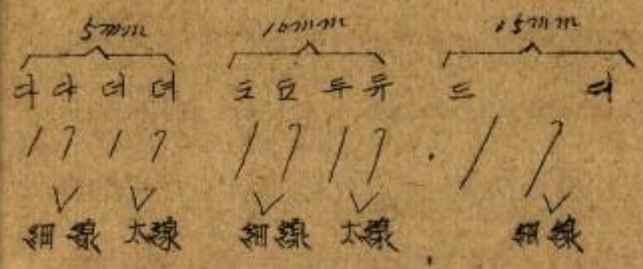 5mm 10mm 15mm
다 댜 더 뎌 도 됴 두 듀 드 디
細線 太線 細線 太線 細線